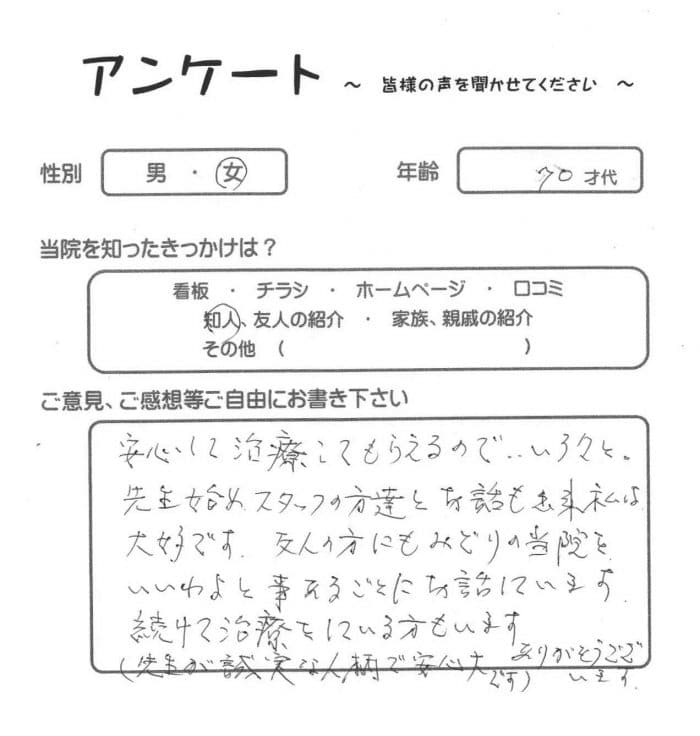 アンケート ～ 皆様の声を聞かせてください ～
性別 男 ・ 女 年齢 70 才代
当院を知ったきっかけは？
看板 ・ チラシ ・ ホームページ ・ 口コミ
知人、友人の紹介 ・ 家族、親戚の紹介
その他 （ ）
ご意見、ご感想等ご自由にお書き下さい
安心して治療してもらえるので‥いろいろと。
先生始めスタッフの方達とお話も出来私は
大好です。友人の方にもみどりの当院を
いいわよと事あるごとにお話しています。
続けて治療をしている方もいます
(先生が誠実な人柄で安心 です) ありがとうござ
います。